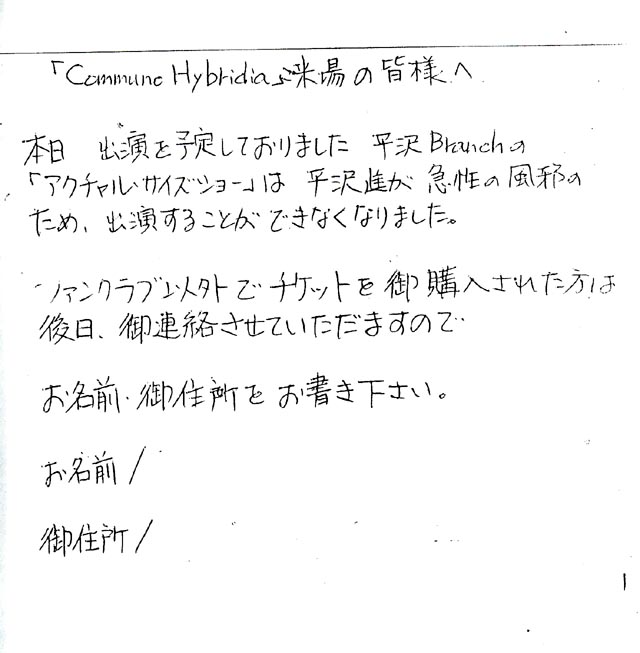 「Commune Hybridia」ご来場の皆様へ
本日 出演を予定しておりました 平沢Branchの
「アクチャル・サイズ・ショー」は 平沢進が 急性の風邪の
ため、出演することが できなくなりました。
ファンクラブ以外で チケットを 御購入された方は
後日、御連絡させていただますので
お名前・御住所を お書き下さい。
お名前/
御住所/